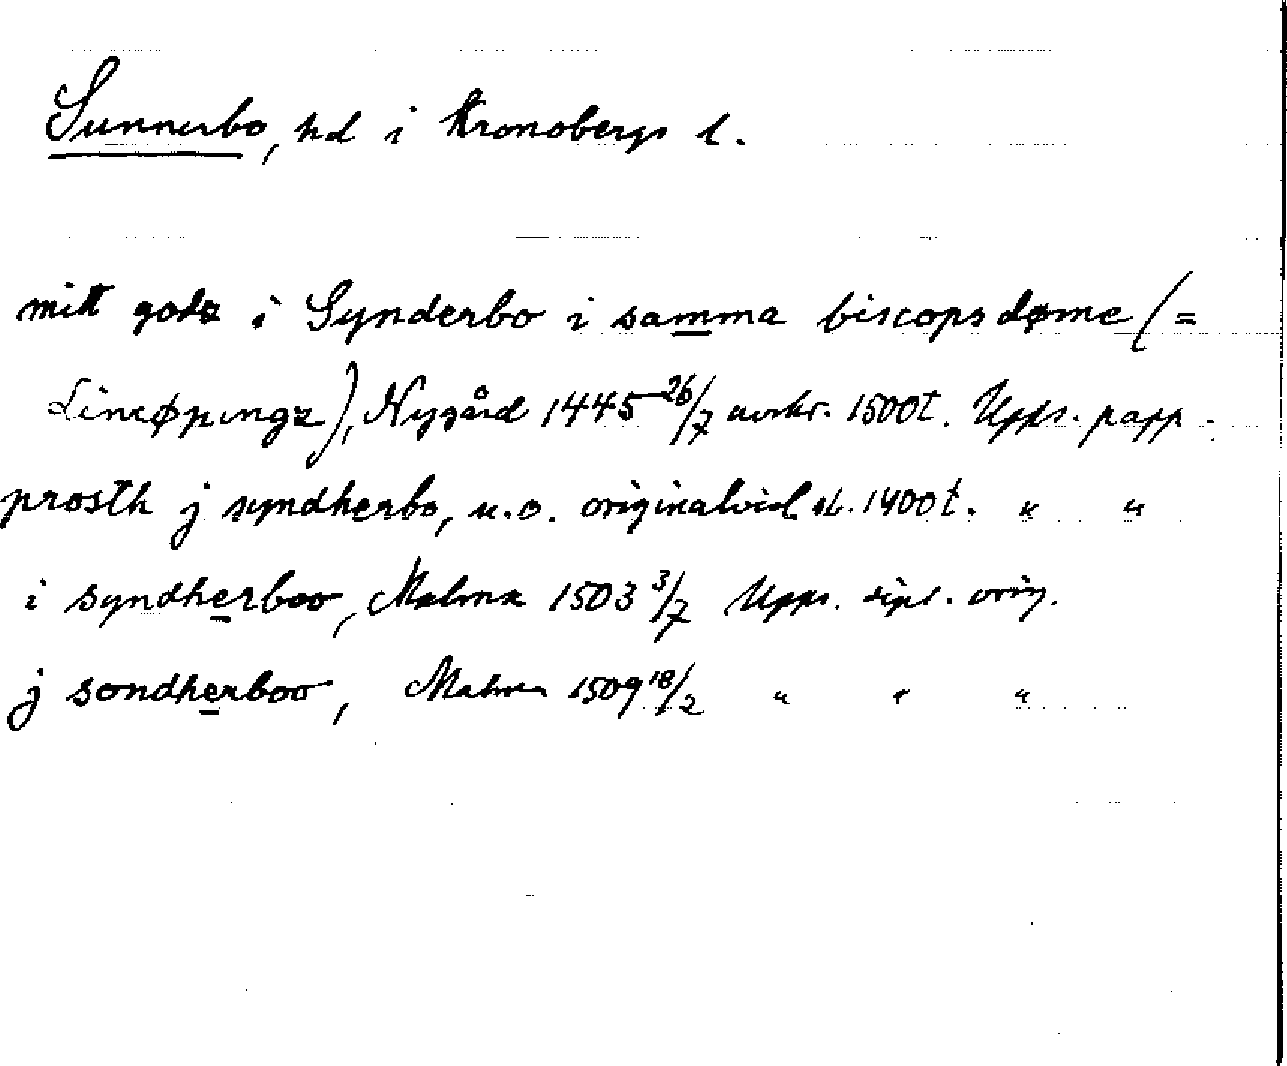 Sunnerbo, hd i Kronobergs l.
mitt godz i Synderbo i samma biscopsdøme (=
Lincøpungz), Nygård 1445 26/7 avskr. 1500t. Upps. papp.
prosth j syndherbo, u.o. originalvid. sl. 1400t. " "
i syndherboo, Malmæ 1503 3/7 Upps. dipl. orig.
j sondherboo, Malmø 1509 18/2 " " "